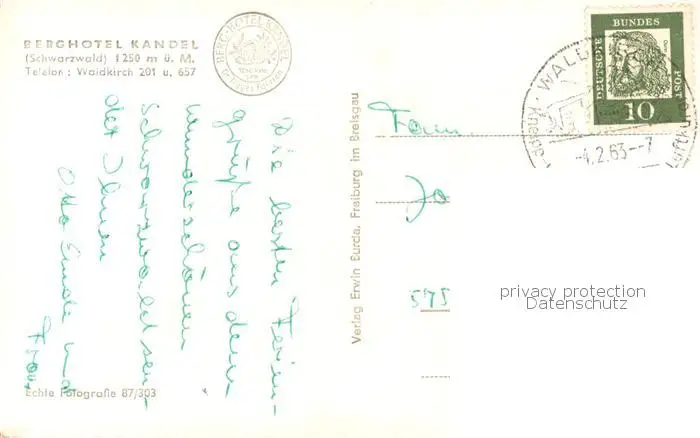 BERGHOTEL KANDEL
(Schwarzwald) 1250 m ü. M.
Telefon: Waldkirch 201 u. 657
BERG-HOTEL KANDEL
Die besten Ferien-
grüße aus dem
wunderschönen
Schwarzwald sen-
det Ihnen
Otto und
Frau
Echte Fotografie 87/303
Verlag Erwin Burda, Freiburg im Breisgau
Fam.
Jo
575
DEUTSCHE BUNDESPOST
10
WALD
Kneipp
Luftku
-4.2.63--7
privacy protection
Datenschutz